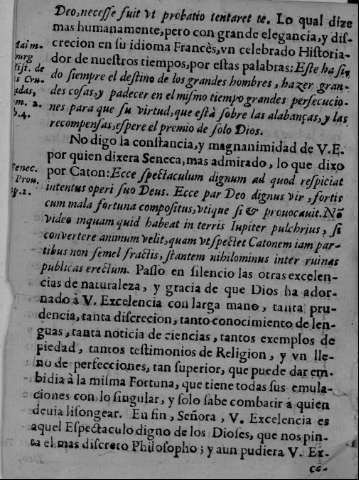 Deo, necesse fuit vt probatio tentaret te. Lo qual dize
mas humanamente, pero con grande elegancia, y dis-
crecion en su idioma Francès, vn celebrado Historia-
dor de nuestros tiempos, por estas palabras: Este ha si-
do siempre el destino de los grandes hombres, hazer gran-
des cosas, y padecer en el mismo tiempo grandes persecucio-
nes para que su virtud, que està sobre las alabanças, y las
recompensas, espere el premio de solo Dios.
No digo la constancia, y magnanimidad de V.E.
por quien dixera Seneca, mas admirado, lo que dixo
por Caton: Ecce spectaculum dignum ad quod respiciat
intentus operi suo Deus. Ecce par Deo dignus vir, fortis
cum mala fortuna compositus, vtique si & prouocauit. Nō
video inquam quid habeat in terris Iupiter pulchrius, si
convertere animum velit, quam vt spectet Catonem iam par-
tibus non semel fractis, stantem nihilominus inter ruinas
publicas erectum. Passo en silencio las otras excelen-
cias de naturaleza, y gracia de que Dios ha ador-
nado à V. Excelencia con larga mano, tanta pru-
dencia, tanta discrecion, tanto conocimiento de len-
guas, tanta noticia de ciencias, tantos exemplos de
piedad, tantos testimonios de Religion, y vn lle-
no de perfecciones, tan superior, que puede dar em-
bidia à la misma Fortuna, que tiene todas sus emula-
ciones con lo singular, y solo sabe combatir à quien
deuia lisongear. En fin, Señora, V. Excelencia es
aquel Espectaculo digno de los Dioses, que nos pin-
ta el mas discreto Philosopho; y aun pudiera V. Ex-
ce-
Mai m-
burg
de
s Cru-
adas,
m. 2.
b. 4.
Senec.
Prou.
ap. 2.